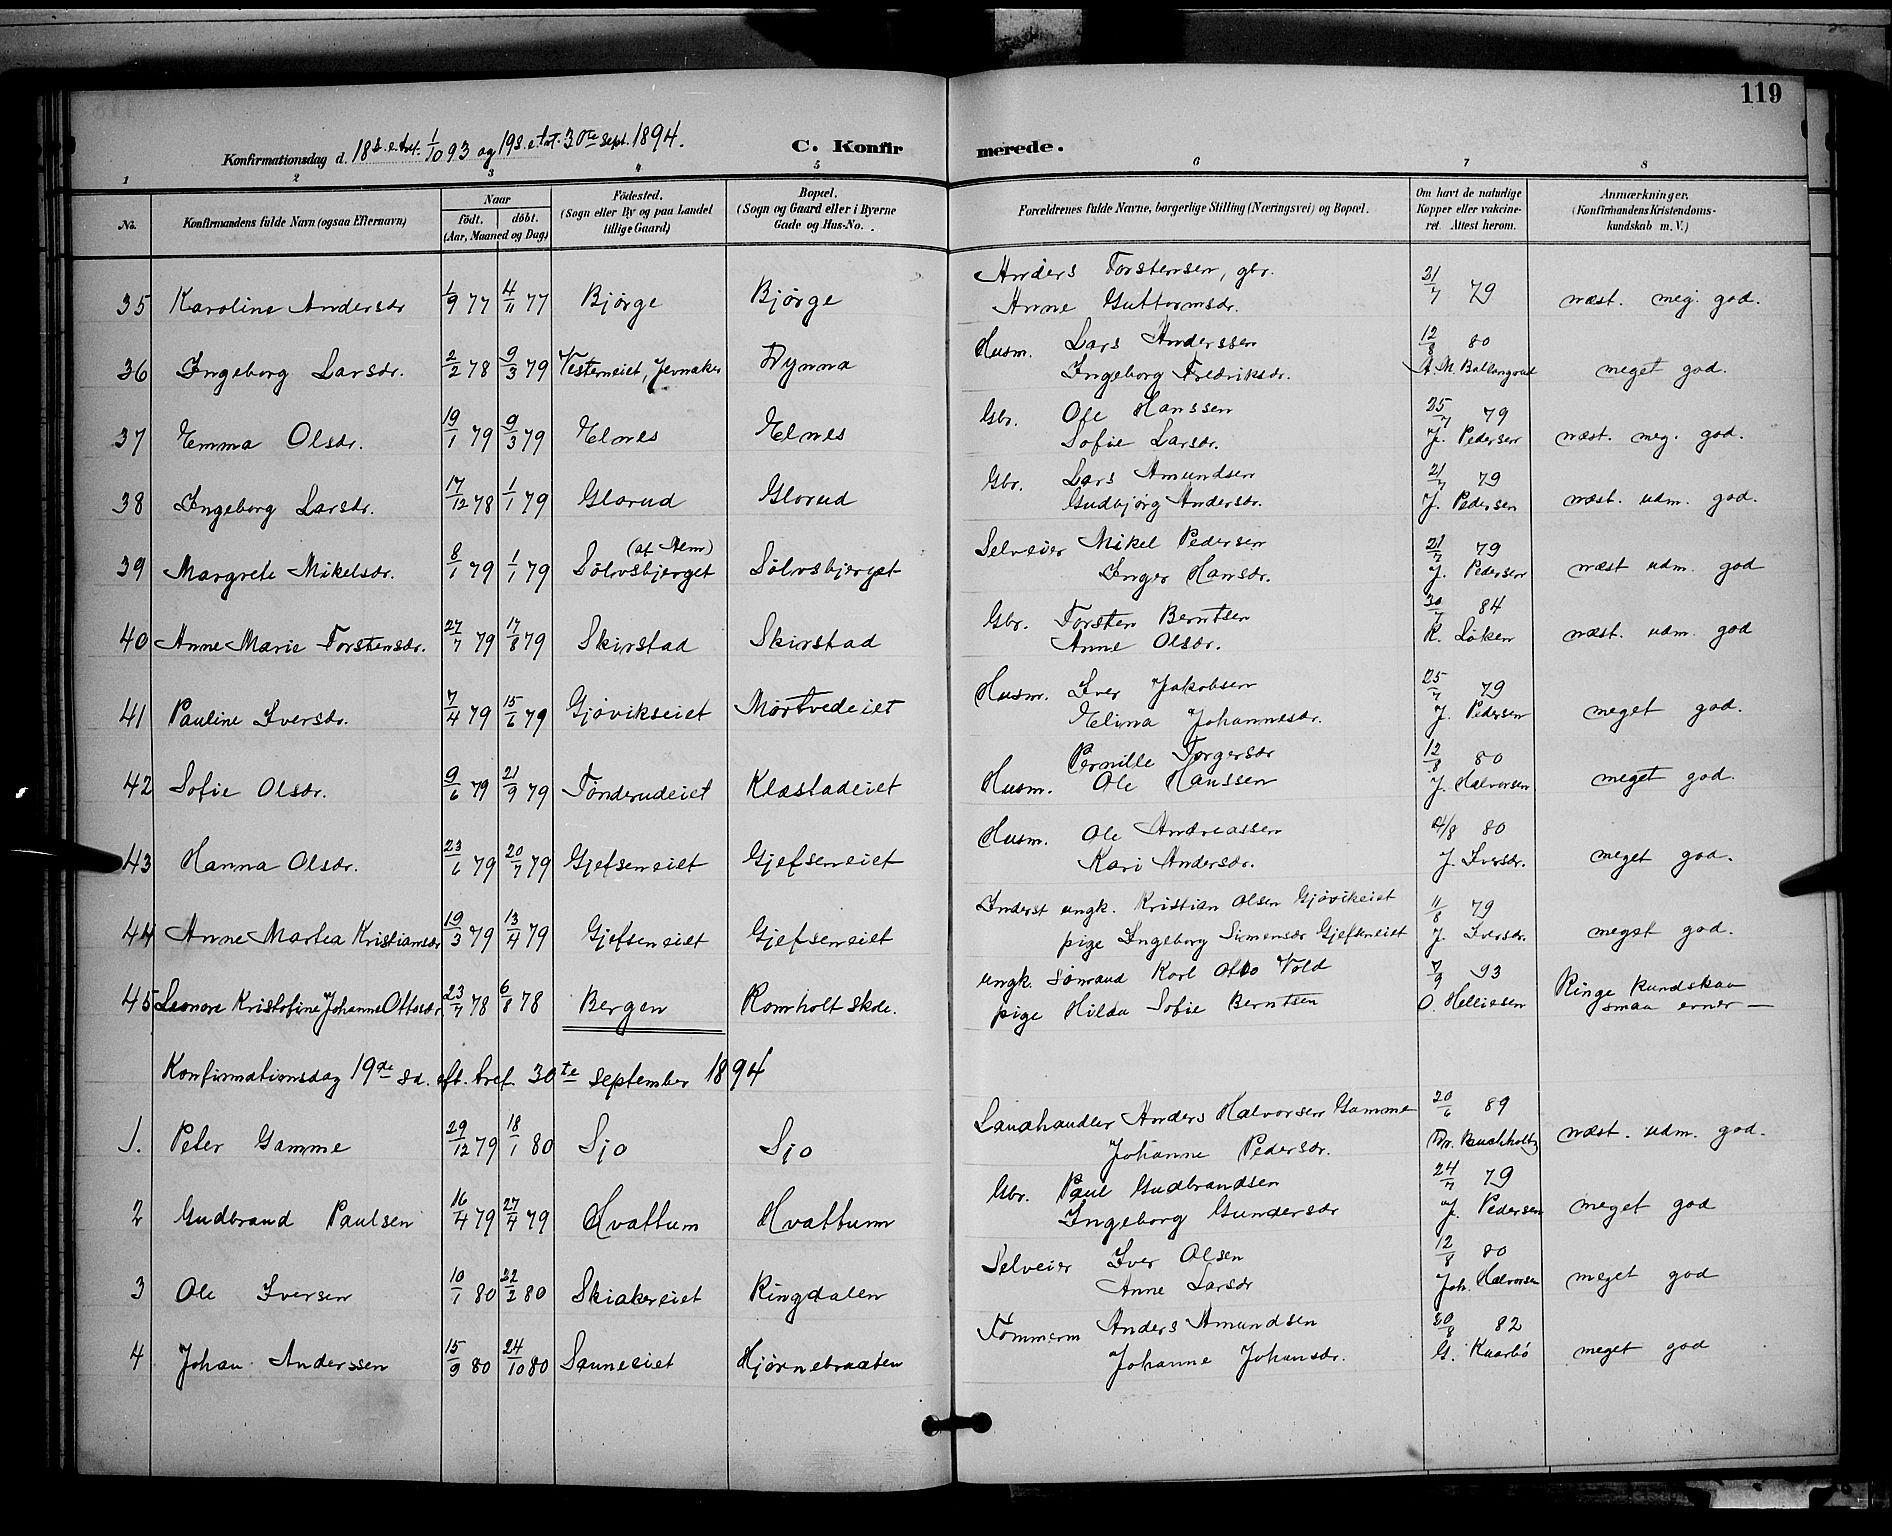 119
Konfirmationsdag d. 18 s. e. tref. 1/10 93 og 19 s. e. tref. 30te sept. 1894.
C. Konfirmerede.
1 2 3 4 5 6 7 8
No. Konfirmandens fulde Navn (ogsaa Efternavn) Naar født. døbt. (Aar, Maaned og Dag) Fødested. (Sogn eller By og paa Landet tillige Gaard) Bopæl. (Sogn og Gaard eller i Byerne Gade og Hus-No. Forældrenes fulde Navne, borgerlige Stilling (Næringsvei) og Bopæl. Om havt de naturlige Kopper eller vaccineret. Attest herom. Anmærkninger. (Konfirmandens Kristendomskundskab m. V.)
35 Karoline Andersdr 1/9 77 4/11 77 Bjørge Bjørge Anders Torstensen, gbr. Anne Guttormsdr. 21/7 79 næst. meg. god.
36 Ingeborg Larsdr. 2/2 78 9/3 79 Vesterneiet, Jevnaker Dynna Husm. Lars Anderssen Ingeborg Fredriksdr. 12/8 80 A. M. Ballangrud meget god.
37 Emma Olsdr. 19/1 79 9/3 79 Elnes Elnes Gbr. Ole Hanssen Sofie Larsdr. 25/7 79 J. Pedersen næst. meg. god.
38 Ingeborg Larsdr. 17/12 78 1/1 79 Glorud Glorud Gbr. Lars Amundsen Gudbjørg Andersdr. 21/7 79 J. Pedersen næst. udm. god.
39 Margrete Mikelsdr. 8/1 79 1/1 79 (at Alm) Sølvsbjerget Sølvsbjerget Selveier Mikel Pedersen Inger Hansdr. 21/7 79 J. Pedersen næst udm. god
40 Anne Marie Torstensdr. 27/7 79 17/8 79 Skirstad Skirstad Gbr. Torsten Berntsen Anne Olsdr. 30/7 84 K. Løken næst. udm. god
41 Pauline Iversdr. 7/4 79 15/6 79 Gjøvikseiet Mørtvedeiet Husm. Iver Jakobsen Elina Johannesdr. 25/7 79 J. Pedersen meget god.
42 Sofie Olsdr. 9/6 79 21/9 79 Tønderudeiet Klæstadeiet Pernille Torgersdr Husm. Ole Hanssen 12/8 80 J. Halvorsen meget god.
43 Hanna Olsdr. 23/6 79 20/7 79 Gjefseneiet Gjefseneiet Husm. Ole Andreassen Kari Andersdr. 80 J. Iversdr. meget god.
44 Anne Martea Kristiansdr 19/3 79 13/4 79 Gjefseneiet Gjefseneiet Inderst ungk. Kristian Olsen Gjøvikeiet pige Ingeborg Simensdr Gjefseneiet 11/8 79 J. Iversdr. meget god.
45 Leonore Kristofine Johanne Ottosdr. 23/7 78 6/8 78 Bergen Romholt skole. ungk. sømand Karl Otto Vold pige Hilda Sofie Berntsen 7/9 93 O. Helliesen Ringe kundskab smaa evner —
Konfirmationsdag 19de sd. eft. tref. 30te september 1894
1. Peter Gamme 29/12 79 18/1 80 Sjo Sjo Landhandler Anders Halvorsen Gamme Johanne Pedersdr. 20/6 89 Dr. Buchholtz næst. udm. god.
2 Gudbrand Paulsen 16/4 79 27/4 79 Hvattum Hvattum Gbr. Paul Gudbrandsen Ingeborg Gundersdr 24/7 79 J. Pedersen meget god
3 Ole Iversen 10/1 80 22/2 80 Skiakereiet Ringdalen Selveier Iver Olsen Anne Larsdr 12/8 80 Joh. Halvorsen meget god
4 Johan Anderssen 15/9 80 24/10 80 Sauneeiet Hjørnebraaten Tømmerm Anders Amundsen Johanne Johansdr. 82 G. Kaarbø meget god